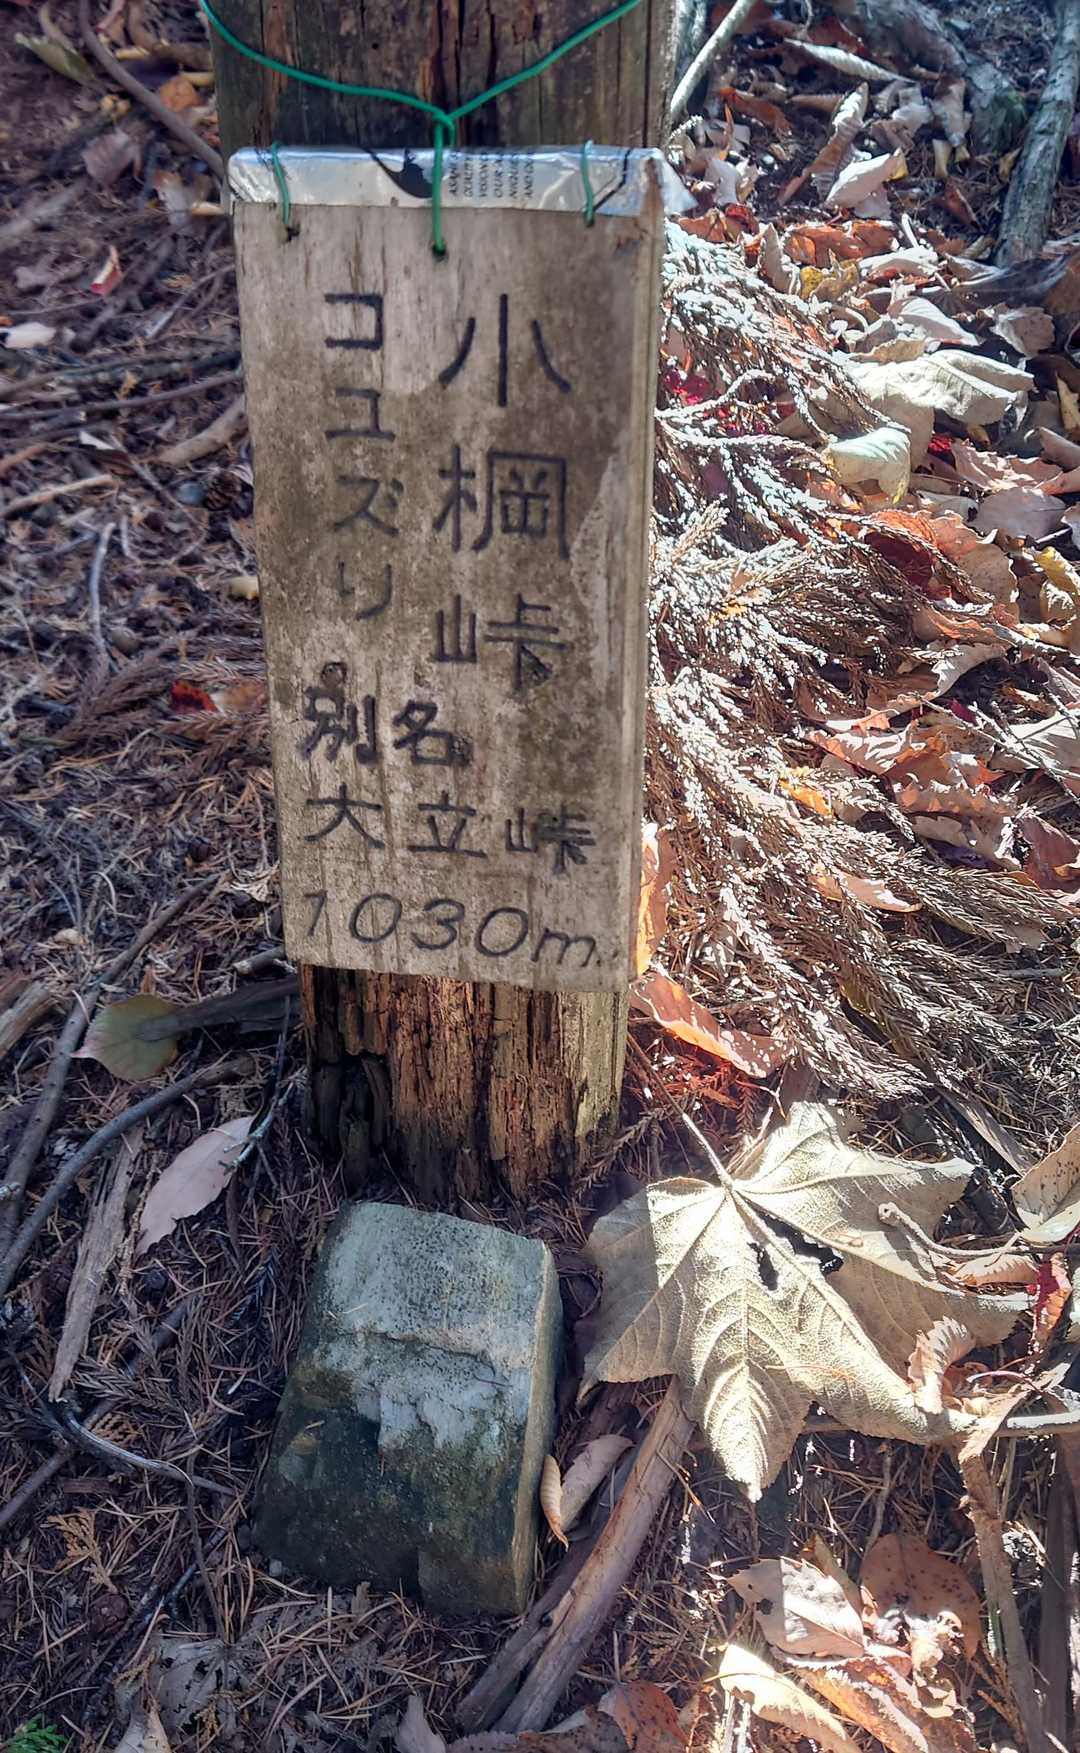 小棡峠
コユズリ
別名
大立峠
1030m.